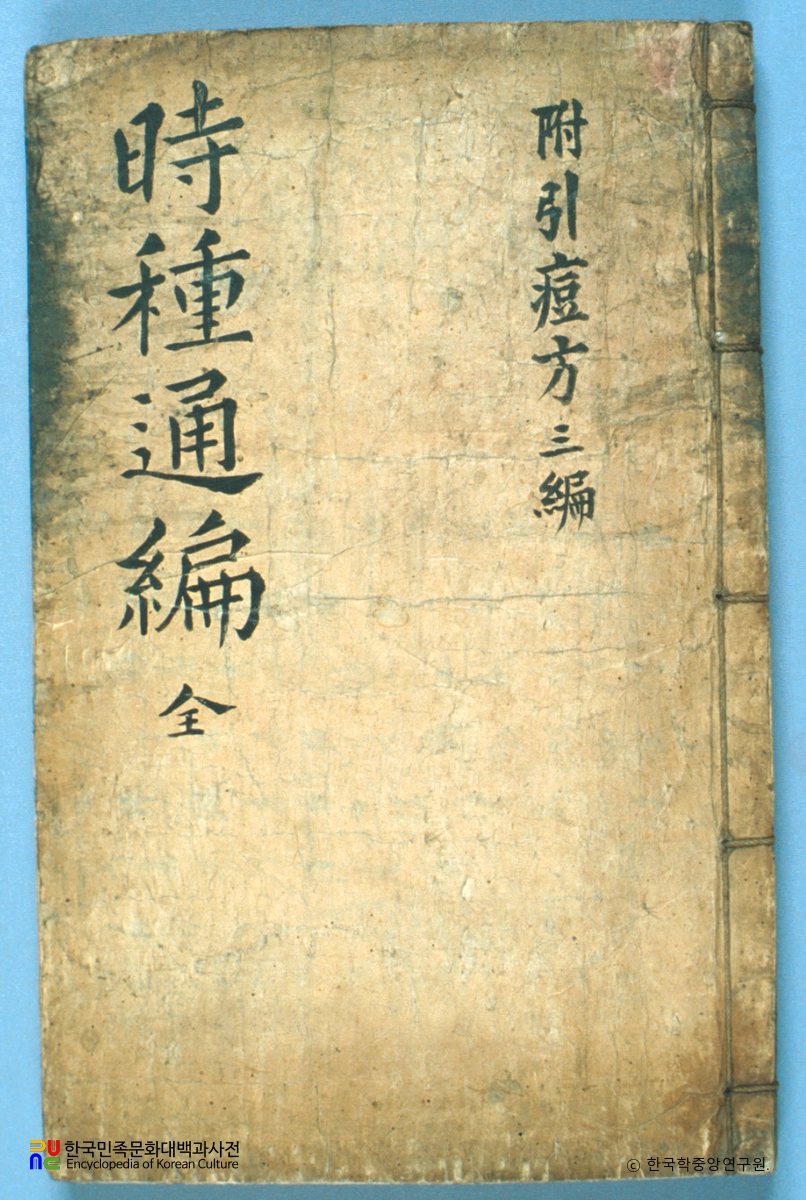 附引痘方三編
時種通編 全
한국민족문화대백과사전
Encyclopedia of Korean Culture
ⓒ 한국학중앙연구원.